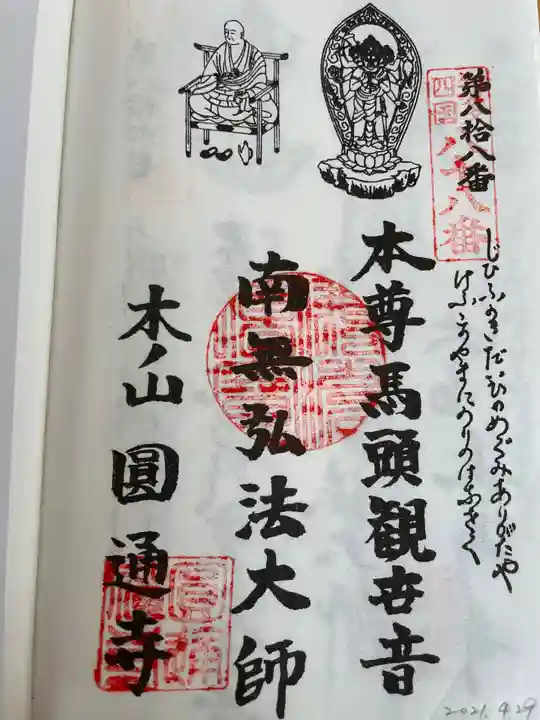 第八拾八番
四国
八十八番
じひふかきだいひのめぐみありがたや
けふこうやまにのりのはなさく
本尊馬頭観世音
南無弘法大師
木ノ山 圓通寺
2021.4.29